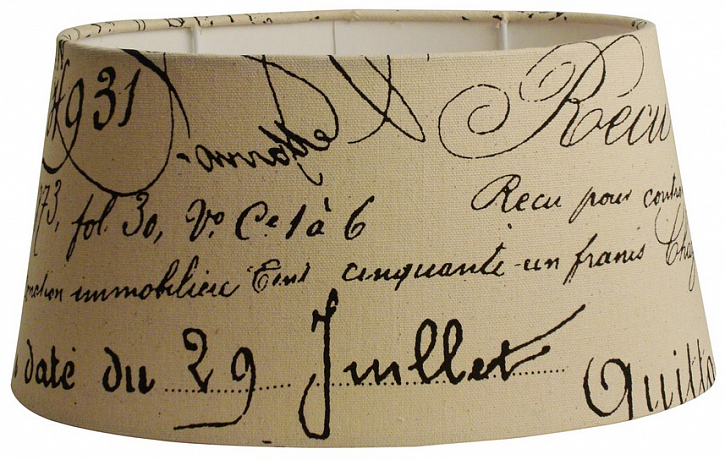 931 Recu
Recu pour contr
73, fol. 30, Vo. Ce 1 à 6
immobilière Cent cinquante-un francs
daté du 29 Juillet Quitta